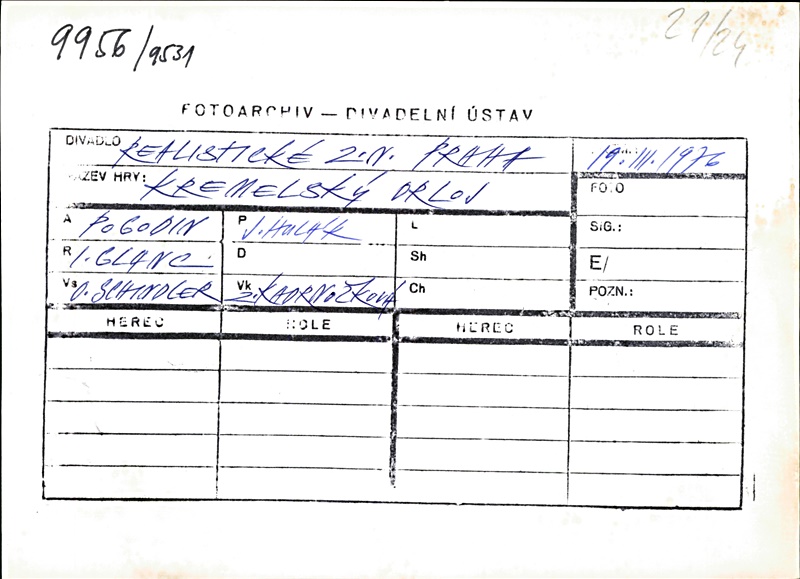 9956/9531
21/24
FOTOARCHIV — DIVADELNÍ ÚSTAV
DIVADLO REALISTICKÉ Z.N. PRAHA 19.III.1976
NÁZEV HRY: KREMELSKÝ ORLOJ FOTO
A POGODIN P J. HULÁK L SIG.:
R I. GLANC D Sh E/
Vs O. SCHINDLER Vk Z. KADRNOŽKOVÁ Ch POZN.:
HEREC ROLE HEREC ROLE